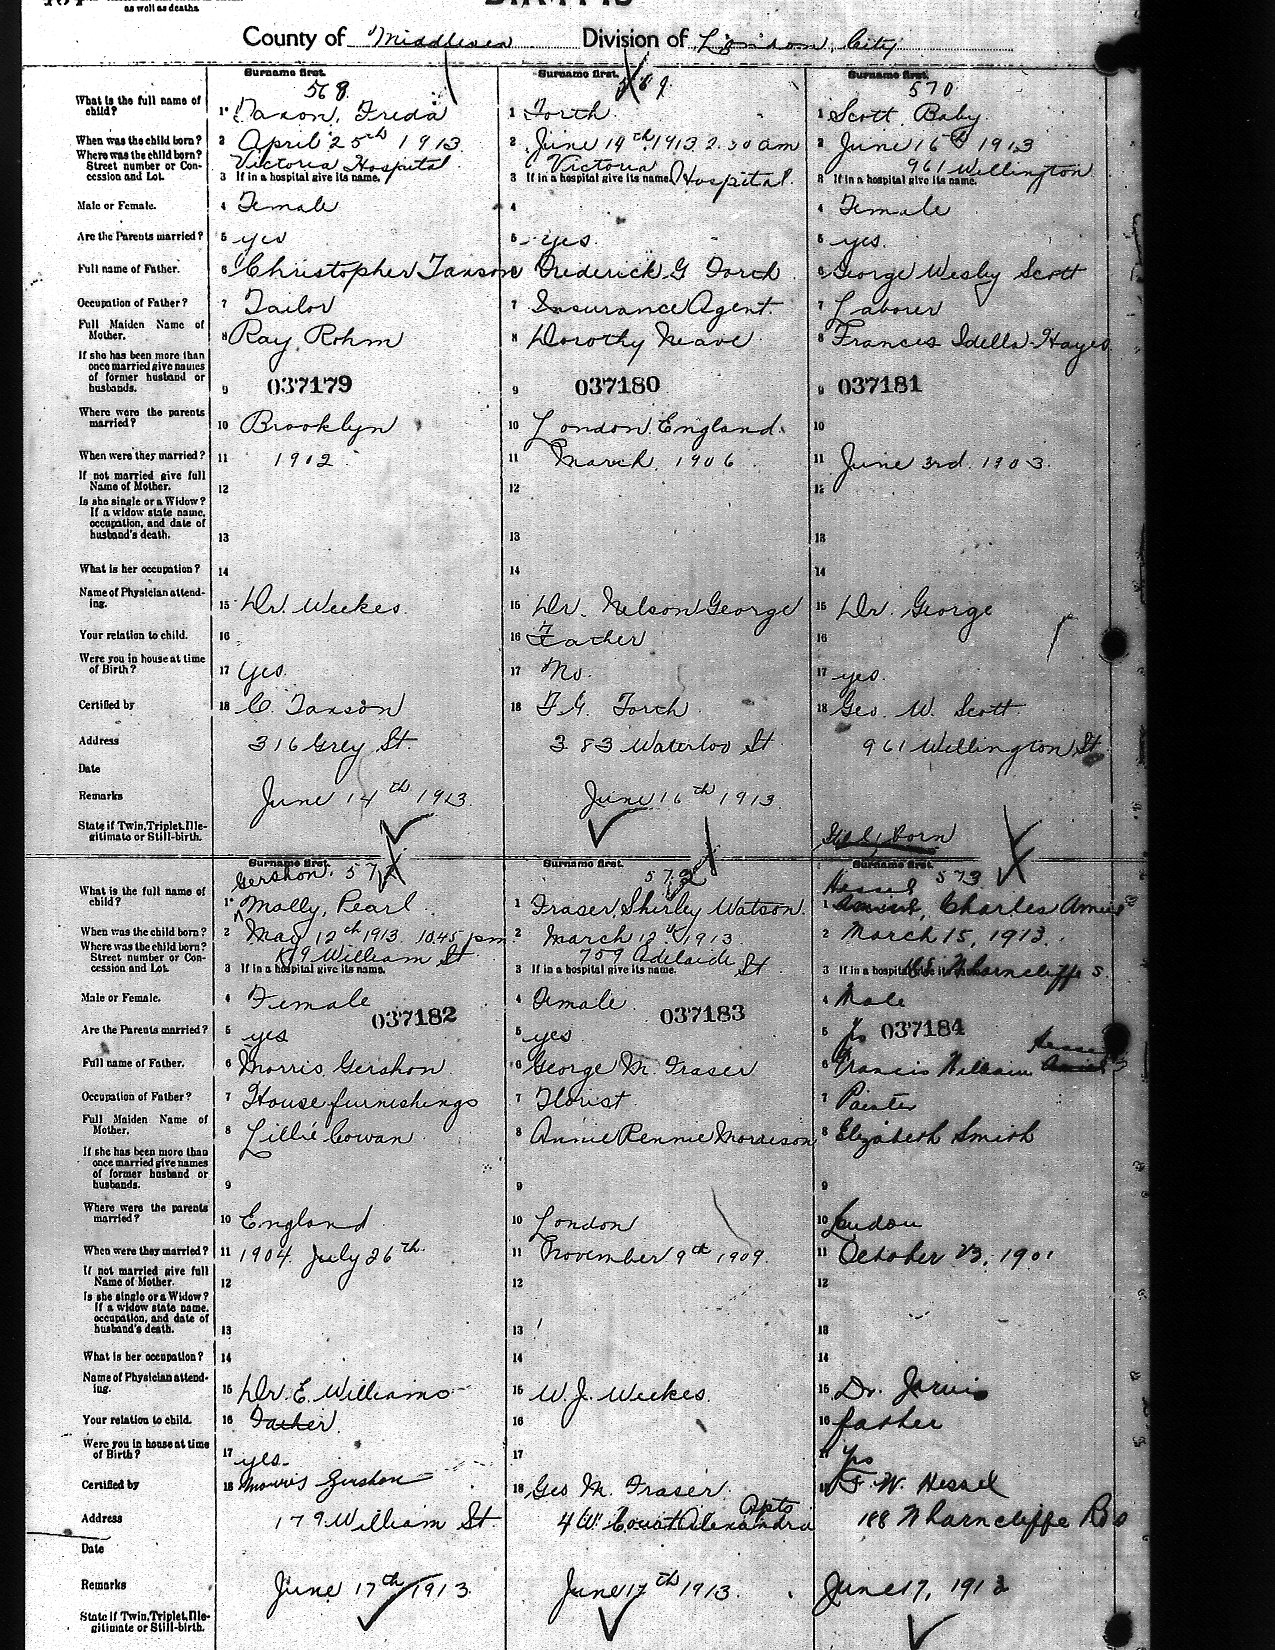 as well as deaths.
BIRTHS
County of Middlesex Division of London, City
Surname first. Surname first. Surname first.
568 569 570
What is the full name of child? 1 Taxon, Freda 1 Torch 1 Scott, Baby
When was the child born? 2 April 25th 1913 2 June 14th 1913 2.30 am 2 June 16th 1913
Where was the child born? Street number or Concession and Lot. Victoria Hospital Victoria Hospital. 961 Wellington
3 If in a hospital give its name. 3 If in a hospital give its name. 3 If in a hospital give its name.
Male or Female. 4 Female 4 4 Female
Are the Parents married? 5 yes 5 yes. 5 yes.
Full name of Father. 6 Christopher Taxson 6 Frederick G Torch 6 George Wesley Scott
Occupation of Father? 7 Tailor 7 Insurance Agent. 7 Laborer
Full Maiden Name of Mother. 8 Ray Rohm 8 Dorothy Neave 8 Frances Idella Hayes
If she has been more than once married give names of former husband or husbands. 9 037179 9 037180 9 037181
Where were the parents married? 10 Brooklyn 10 London England. 10
When were they married? 11 1912 11 March, 1906 11 June 3rd 1903.
If not married give full Name of Mother. 12 12 12
Is she single or a Widow? If a widow state name, occupation, and date of husband's death. 13 13 13
What is her occupation? 14 14 14
Name of Physician attending. 15 Dr. Weekes. 15 Dr. Nelson George 15 Dr. George
Your relation to child. 16 16 Father 16
Were you in house at time of Birth? 17 Yes. 17 No. 17 yes.
Certified by 18 C. Taxson 18 F.G. Torch 18 Geo. W. Scott.
Address 316 Grey St. 383 Waterloo St 961 Wellington St
Date
Remarks June 14th 1913. June 16th 1913.
State if Twin, Triplet, Illegitimate or Still-birth. Still Born
Surname first. Surname first. Surname first.
Gershon. 571 572 Hessel 573
What is the full name of child? 1 Molly, Pearl 1 Fraser, Shirley Watson. 1 Amiel, Charles Amiel
When was the child born? 2 May 12th 1913 10.45 pm 2 March 12th 1913 2 March 15, 1913.
Where was the child born? Street number or Concession and Lot. 179 William St 759 Adelaide St
3 If in a hospital give its name. 3 If in a hospital give its name. 3 If in a hospital give its name. Wharncliffe S.
Male or Female. 4 Female 4 Female 4 Male
037182 037183 037184
Are the Parents married? 5 yes 5 yes 5 Yes
Full name of Father. 6 Morris Gershon 6 George M. Fraser 6 Francis William Amiel Hessel
Occupation of Father? 7 House furnishings 7 Florist 7 Painter
Full Maiden Name of Mother. 8 Lillie Cowan 8 Annie Rennie Morrison 8 Elizabeth Smith
If she has been more than once married give names of former husband or husbands. 9 9 9
Where were the parents married? 10 England 10 London 10 London
When were they married? 11 1904 July 26th 11 November 9th 1909. 11 October 23, 1901
If not married give full Name of Mother. 12 12 12
Is she single or a Widow? If a widow state name, occupation, and date of husband's death. 13 13 13
What is her occupation? 14 14 14
Name of Physician attending. 15 Dr. E. Williams 15 W. J. Weekes. 15 Dr. Jarvis
Your relation to child. 16 Father. 16 16 father
Were you in house at time of Birth? 17 yes. 17 17 Yes
Certified by 18 Morris Gershon 18 Geo M. Fraser 18 F. W. Hessel
Address 179 William St. 4 W. Court Alexandra Apts 188 Wharncliffe Rd S
Date
Remarks June 17th 1913 June 17th 1913. June 17, 1913
State if Twin, Triplet, Illegitimate or Still-birth.